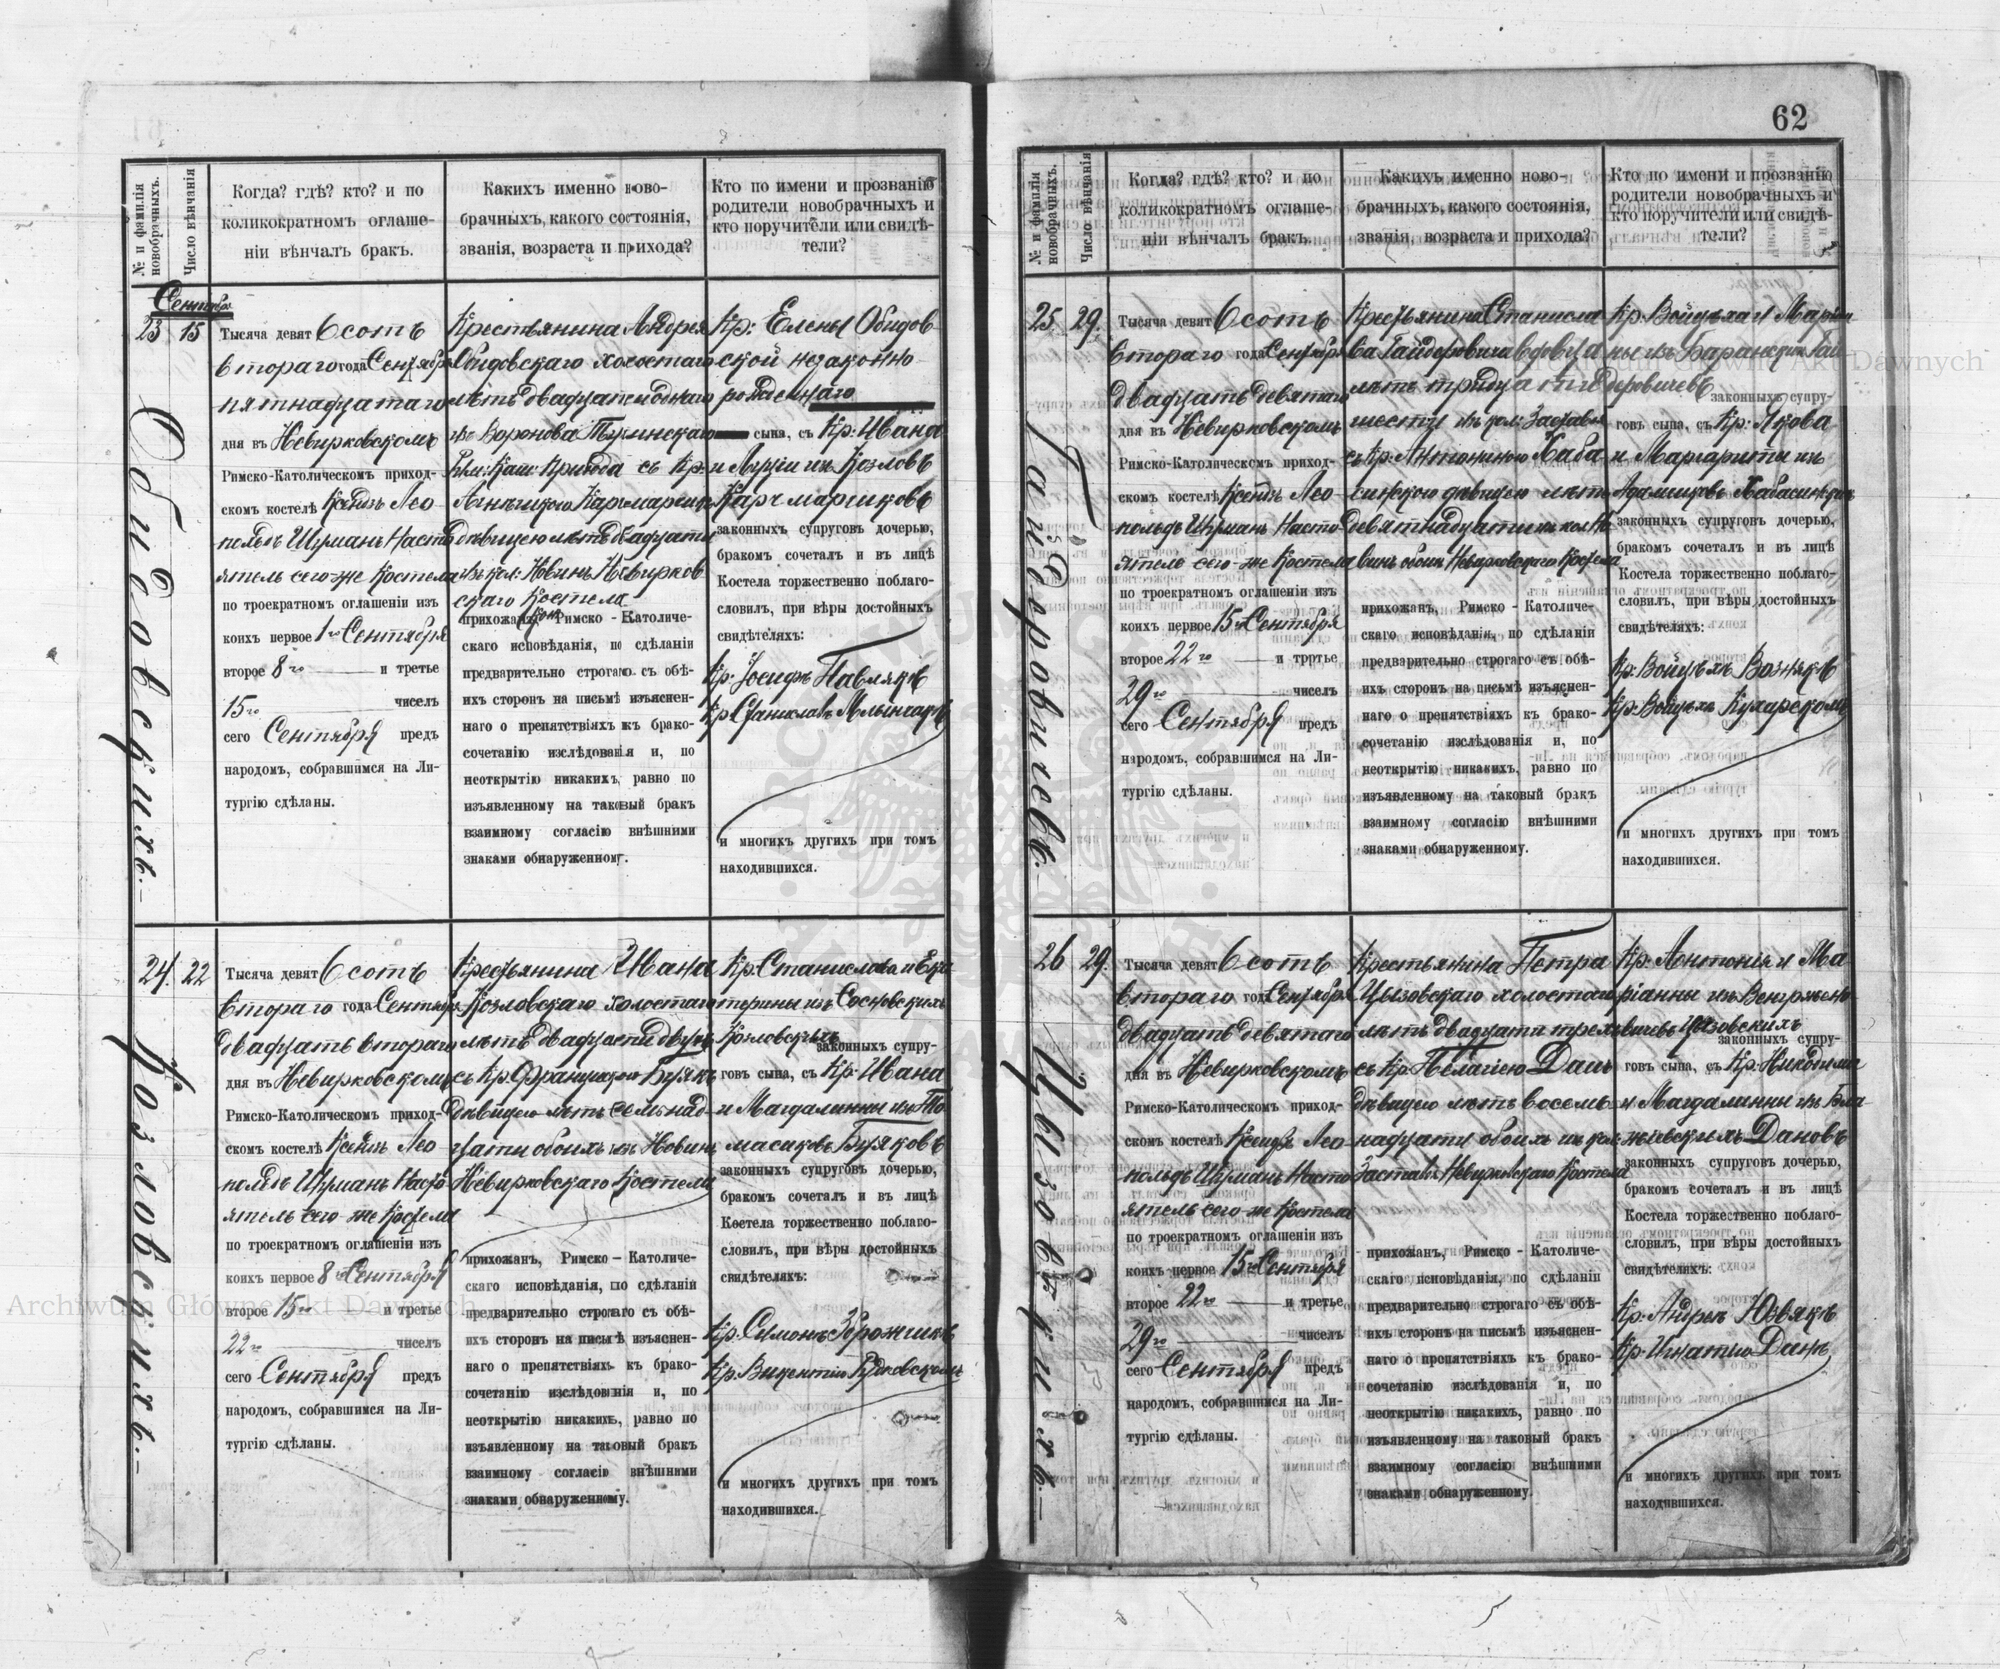 62
№ и фамилія новобрачныхъ.
Число вѣнчанія
Когда? гдѣ? кто? и по
коликократномъ оглаше-
ніи вѣнчалъ бракъ.
Какихъ именно ново-
брачныхъ, какого состоянія,
званія, возраста и прихода?
Кто по имени и прозванію
родители новобрачныхъ и
кто поручители или свидѣ-
тели?
Сентябрь
23
15
Обидовскихъ.
Тысяча девятьсотъ
втораго года Сентября
пятнадцатаго
дня въ Невирковскомъ
Римско-Католическомъ приход-
скомъ костелѣ Ксендзъ Лео
польдъ Шуманъ Насто
ятель сего же Костела
по троекратномъ оглашеніи изъ
коихъ первое 1го Сентября
второе 8го и третье
15го чиселъ
сего Сентября предъ
народомъ, собравшимся на Ли-
тургію сдѣланы.
Крестьянина Андрея
Обидовскаго холостаго
лѣтъ двадцати однаго
изъ Воронова
Прихода съ Кр:
дѣвицею лѣтъ двадцати
изъ кол: Новинъ Невирков
скаго Костела
прихожанъ, Римско-Католиче-
скаго исповѣданія, по сдѣланіи
предварительно строгаго съ обѣ-
ихъ сторонъ на письмѣ изъяснен-
наго о препятствіяхъ къ брако-
сочетанію изслѣдованія и, по
неоткрытію никакихъ, равно по
изъявленному на таковый бракъ
взаимному согласію внѣшними
знаками обнаруженному.
Кр: Елены Обидов
ской незаконно
рожденнаго
сына, съ Кр: Ивана
и Луціи изъ Козловъ
Карчмарчиковъ
законныхъ супруговъ дочерью,
бракомъ сочеталъ и въ лицѣ
Костела торжественно поблаго-
словилъ, при вѣры достойныхъ
свидѣтеляхъ:
Кр: Іосифъ Павлякъ
Кр: Станиславъ
и многихъ другихъ при томъ
находившихся.
24.
22
Козловскихъ.
Тысяча девятьсотъ
втораго года Сентября
двадцать втораго
дня въ Невирковскомъ
Римско-Католическомъ приход-
скомъ костелѣ Ксендзъ Лео
польдъ Шуманъ Насто
ятель сего же Костела
по троекратномъ оглашеніи изъ
коихъ первое 8го Сентября
второе 15го и третье
22го чиселъ
сего Сентября предъ
народомъ, собравшимся на Ли-
тургію сдѣланы.
Крестьянина Ивана
Козловскаго холостаго
лѣтъ двадцати двухъ
съ Кр: Францишкою Бузякъ
дѣвицею лѣтъ семьнад-
цати обоихъ изъ Новинъ
Невирковскаго Костела
прихожанъ, Римско-Католиче-
скаго исповѣданія, по сдѣланіи
предварительно строгаго съ обѣ-
ихъ сторонъ на письмѣ изъяснен-
наго о препятствіяхъ къ брако-
сочетанію изслѣдованія и, по
неоткрытію никакихъ, равно по
изъявленному на таковый бракъ
взаимному согласію внѣшними
знаками обнаруженному.
Кр: Станислава и Ека
терины изъ Сосновскихъ
Козловскихъ
законныхъ супру-
говъ сына, съ Кр: Ивана
и Магдалины изъ То
масиковъ Бузяковъ
законныхъ супруговъ дочерью,
бракомъ сочеталъ и въ лицѣ
Костела торжественно поблаго-
словилъ, при вѣры достойныхъ
свидѣтеляхъ:
Кр: Симонъ
Кр: Викентій
и многихъ другихъ при томъ
находившихся.
№ и фамилія новобрачныхъ.
Число вѣнчанія
Когда? гдѣ? кто? и по
коликократномъ оглаше-
ніи вѣнчалъ бракъ.
Какихъ именно ново-
брачныхъ, какого состоянія,
званія, возраста и прихода?
Кто по имени и прозванію
родители новобрачныхъ и
кто поручители или свидѣ-
тели?
25.
29.
Гайдеровичевъ.
Тысяча девятьсотъ
втораго года Сентября
двадцать девятаго
дня въ Невирковскомъ
Римско-Католическомъ приход-
скомъ костелѣ Ксендзъ Лео
польдъ Шуманъ Насто
ятель сего же Костела
по троекратномъ оглашеніи изъ
коихъ первое 15го Сентября
второе 22го и тртье
29го чиселъ
сего Сентября предъ
народомъ, собравшимся на Ли-
тургію сдѣланы.
Крестьянина Станисла
ва Гайдеровича вдовца
лѣтъ тридцати
шести изъ кол: Заставья
съ Кр: Антониною Хаба
синскою дѣвицею лѣтъ
девятнадцати изъ кол: Но
винъ обоихъ Невирковскаго Костела
прихожанъ, Римско-Католиче-
скаго исповѣданія, по сдѣланіи
предварительно строгаго съ обѣ-
ихъ сторонъ на письмѣ изъяснен-
наго о препятствіяхъ къ брако-
сочетанію изслѣдованія и, по
неоткрытію никакихъ, равно по
изъявленному на таковый бракъ
взаимному согласію внѣшними
знаками обнаруженному.
Кр: Войцѣха и Маріан
ны изъ Баранскихъ Гай
деровичевъ
законныхъ супру-
говъ сына, съ Кр: Якова
и Маргариты изъ
Адамиковъ Хабасинскихъ
законныхъ супруговъ дочерью,
бракомъ сочеталъ и въ лицѣ
Костела торжественно поблаго-
словилъ, при вѣры достойныхъ
свидѣтеляхъ:
Кр: Войцѣхъ Вознякъ
Кр: Войцѣхъ Кухарскомъ
и многихъ другихъ при томъ
находившихся.
26
29.
Цызовскихъ.
Тысяча девятьсотъ
втораго года Сентября
двадцать девятаго
дня въ Невирковскомъ
Римско-Католическомъ приход-
скомъ костелѣ Ксендзъ Лео
польдъ Шуманъ Насто
ятель сего же Костела
по троекратномъ оглашеніи изъ
коихъ первое 15го Сентября
второе 22го и третье
29го чиселъ
сего Сентября предъ
народомъ, собравшимся на Ли-
тургію сдѣланы.
Крестьянина Петра
Цызовскаго холостаго
лѣтъ двадцати трехъ
съ Кр: Пелагіею Данъ
дѣвицею лѣтъ восемь
надцати обоихъ изъ кол:
Заставья Невирковскаго Костела
прихожанъ, Римско-Католиче-
скаго исповѣданія, по сдѣланіи
предварительно строгаго съ обѣ-
ихъ сторонъ на письмѣ изъяснен-
наго о препятствіяхъ къ брако-
сочетанію изслѣдованія и, по
неоткрытію никакихъ, равно по
изъявленному на таковый бракъ
взаимному согласію внѣшними
знаками обнаруженному.
Кр: Антонія и Ма
ріанны изъ Венгржено
вичевъ Цызовскихъ
законныхъ супру-
говъ сына, съ Кр: Никодима
и Магдалины изъ Бла
жіевскихъ Дановъ
законныхъ супруговъ дочерью,
бракомъ сочеталъ и въ лицѣ
Костела торжественно поблаго-
словилъ, при вѣры достойныхъ
свидѣтеляхъ:
Кр: Андрей Юзвякъ
Кр: Игнатію Данъ
и многихъ другихъ при томъ
находившихся.
Archiwum Główne Akt Dawnych
Archiwum Główne Akt Dawnych